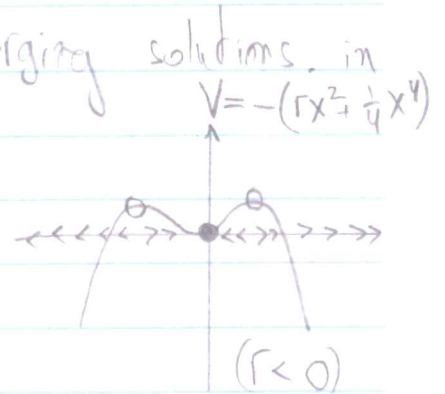 rging solutions. in
V = -(rx² + ¼x⁴)
(r < 0)